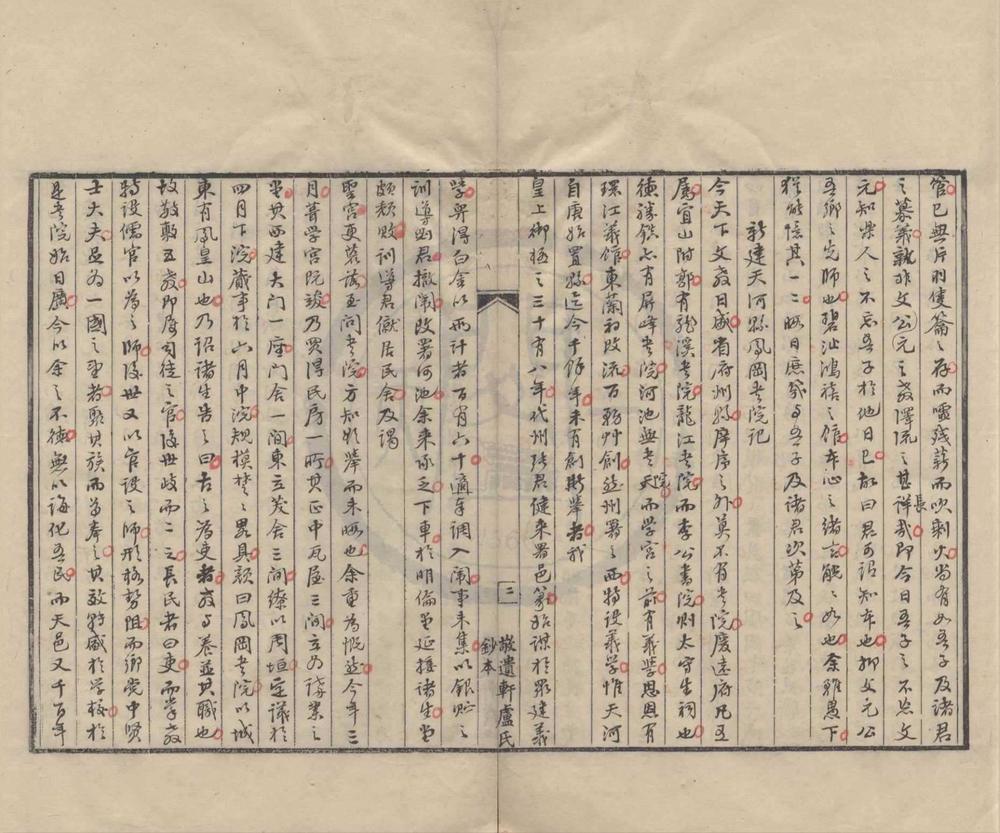 管已無片羽隻籥之存而噓殘薪而吹剩火尚有如吾子及諸君
之慕義執非文公元之教澤流之甚詳哉即今日吾子之不忘文
元知柴人之不忘吾子於他日已故曰君可詔知本也抑父元公
吾鄉之先師也碧沚鴻禧之館本心之緒
猶能憶其一二晦日庶幾與吾子及諸君次第及之
新建天河縣鳳岡書院記
今天下文教日盛省府州縣庠序之外莫不有書院慶遠府凡五
屬宜山附郭有龍溪書院龍江書院而李公書院則太守生祠也
德勝鎮亦有屏峰書院河池無書院而學宮之前有義學思恩有
環江義館東蘭初改流百務草創然州署之西特設義學惟天河
自唐始置縣迄今千餘年未有創斯舉者我
皇上御極之三十有八年代州張君健來署邑篆始謀於眾建義
學舁得白金以兩計者百有六十適奉調入闈事未集以銀貯之
訓導幽君徹闈改署河池余來承乏下車於明倫堂延接諸生堂
頗頹敗訓導君僦居民舍及謁
雲宮更荒落至問書院方知斯舉而未晦也余重為慨然今年三
月葺學宮既竣乃買得民房一所其正中瓦屋三間立為講業之
堂其西建大門一座門舍一間東立茂舍三間繚以周垣定議於
四月下浣蕆事於六月中浣規模楚楚畧具額曰鳳岡書院以城
東有鳳皇山也乃詔諸生告之曰古之為吏者教與養並其職也
故敬敷五教即屬司徒之官後世歧而二之長民者曰吏而掌教
特設儒官以為之師後世又以官設之師形格勢阻而鄉黨中賢
士大夫足為一國之望者聚其族而當奉之其效特盛於學校於
是書院始日廣今以余之不德無以誨化吾民而天邑又千百年
二
敬遺軒盧氏
鈔本